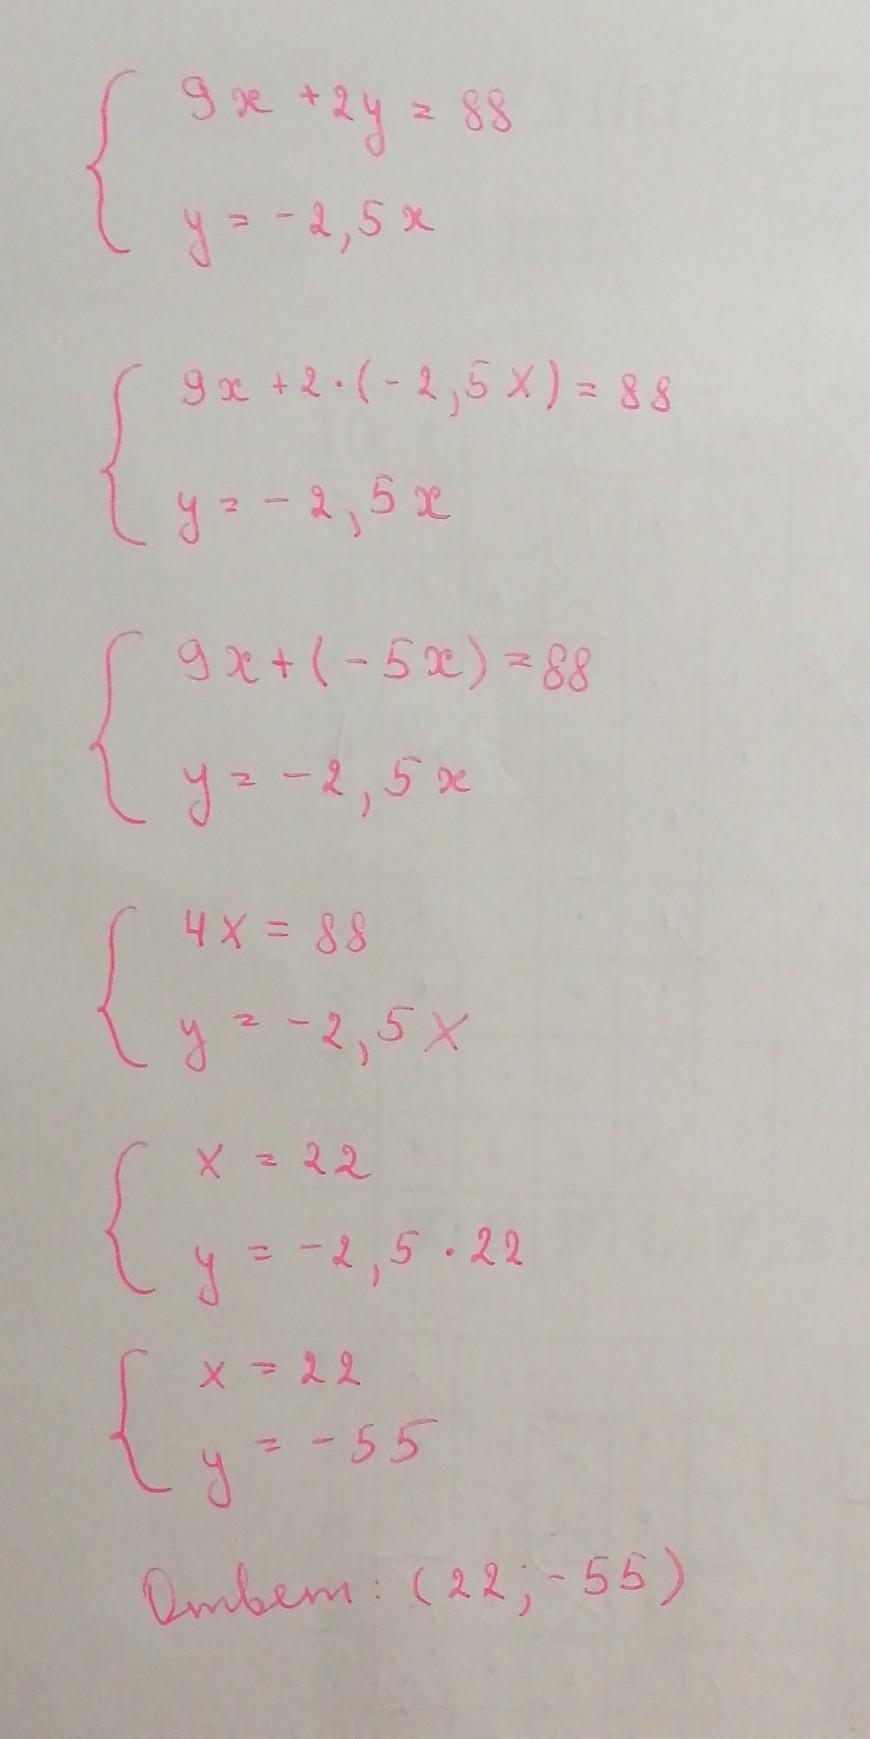 9x + 2y = 88
y = -2,5x
9x + 2·(-2,5x) = 88
y = -2,5x
9x + (-5x) = 88
y = -2,5x
4x = 88
y = -2,5x
x = 22
y = -2,5 · 22
x = 22
y = -55
Ответ: (22; -55)